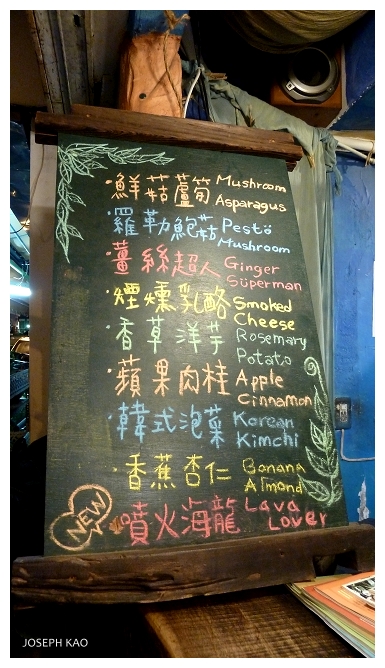 鮮菇蘆筍 Mushroom
Asparagus
羅勒鮑菇 Pesto
Mushroom
薑絲超人 Ginger
Süperman
煙燻乳酪 Smoked
Cheese
香草洋芋 Rosemary
Potato
蘋果肉桂 Apple
Cinnamon
韓式泡菜 Korean
Kimchi
香蕉杏仁 Banana
Almond
NEW 噴火海龍 Lava
Lover
JOSEPH KAO